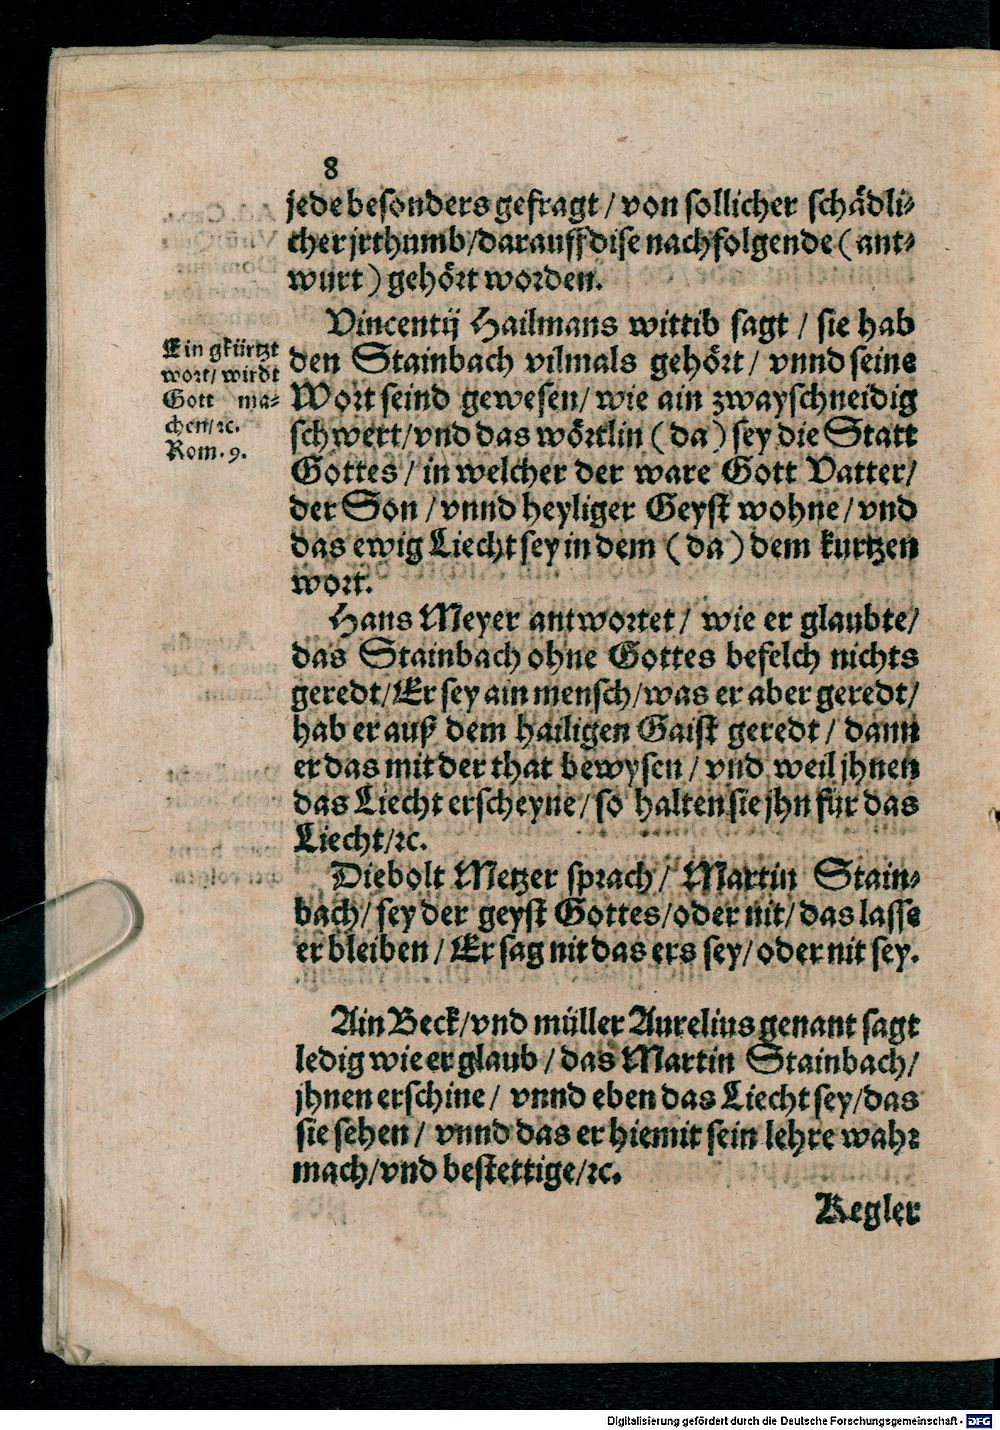 8
jede besonders gefragt / von sollicher schädli-
cher jrthumb/darauff dise nachfolgende ( ant-
wurt ) gehört worden.
Vincentij Hailmans wittib sagt / sie hab
den Stainbach vilmals gehört / vnnd seine
Wort seind gewesen/ wie ain zwayschneidig
schwert/vnd das wörtlin ( da ) sey die Statt
Gottes / in welcher der ware Gott Vatter/
der Son / vnnd heyliger Geyst wohne / vnd
das ewig Liecht sey in dem ( da ) dem kurtzen
wort.
Ein gkürtzt
wort/ wirdt
Gott ma-
chen/ꝛc.
Rom. 9.
Hans Meyer antwortet / wie er glaubte/
das Stainbach ohne Gottes befelch nichts
geredt/Er sey ain mensch/was er aber geredt/
hab er auß dem hailigen Gaist geredt / dann
er das mit der that bewysen / vnd weil jhnen
das Liecht erscheyne / so halten sie jhn für das
Liecht/ꝛc.
Diebolt Metzer sprach / Martin Stain-
bach/ sey der geyst Gottes/oder nit/ das lasse
er bleiben / Er sag nit das ers sey/ oder nit sey.
Ain Beck/vnd müller Aurelius genant sagt
ledig wie er glaub / das Martin Stainbach/
jhnen erschine / vnnd eben das Liecht sey/das
sie sehen / vnnd das er hiemit sein lehre wahr
mach/vnd bestettige/ꝛc.
Kegler
Digitalisierung gefördert durch die Deutsche Forschungsgemeinschaft - DFG